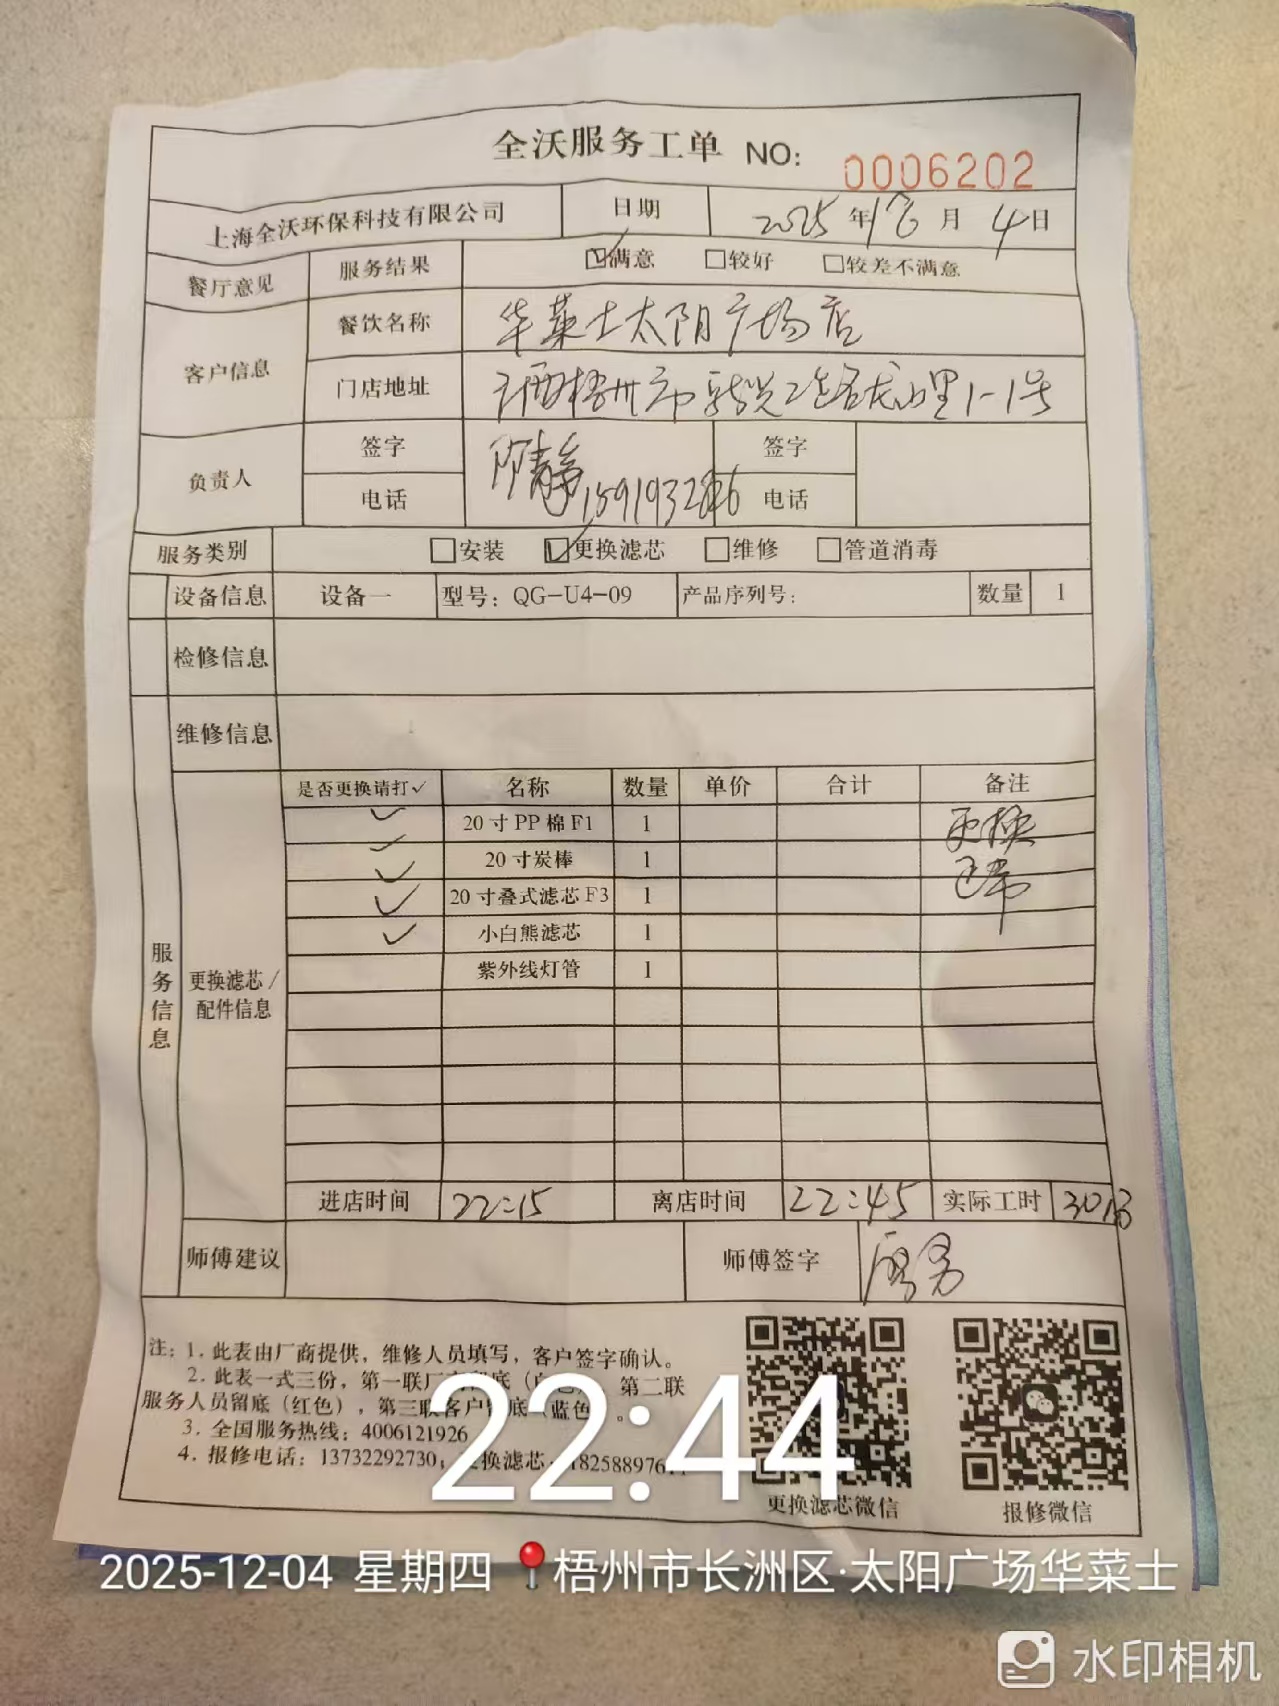 全沃服务工单 NO: 0006202
上海全沃环保科技有限公司 日期 2025年12月4日
餐厅意见 服务结果 ☑满意 □较好 □较差不满意
客户信息 餐饮名称 华莱士太阳广场店
门店地址 广西梧州市新兴二路龙山里1-1号
负责人 签字 签字
电话 电话
服务类别 □安装 ☑更换滤芯 □维修 □管道消毒
设备信息 设备一 型号：QG-U4-09 产品序列号： 数量 1
检修信息
维修信息
服务信息
更换滤芯/
配件信息
是否更换请打✓ 名称 数量 单价 合计 备注
✓ 20寸PP棉F1 1 更换
✓ 20寸炭棒 1 正常
✓ 20寸叠式滤芯F3 1
✓ 小白熊滤芯 1
✓ 紫外线灯管 1
进店时间 22:15 离店时间 22:45 实际工时 30分
师傅建议 师傅签字
注：1．此表由厂商提供，维修人员填写，客户签字确认。
2．此表一式三份，第一联厂商留底（白色），第二联
服务人员留底（红色），第三联客户留底（蓝色）。
3．全国服务热线：4006121926
4．报修电话：13732292730；更换滤芯：
更换滤芯微信 报修微信
22:44
2025-12-04 星期四 梧州市长洲区·太阳广场华莱士
水印相机